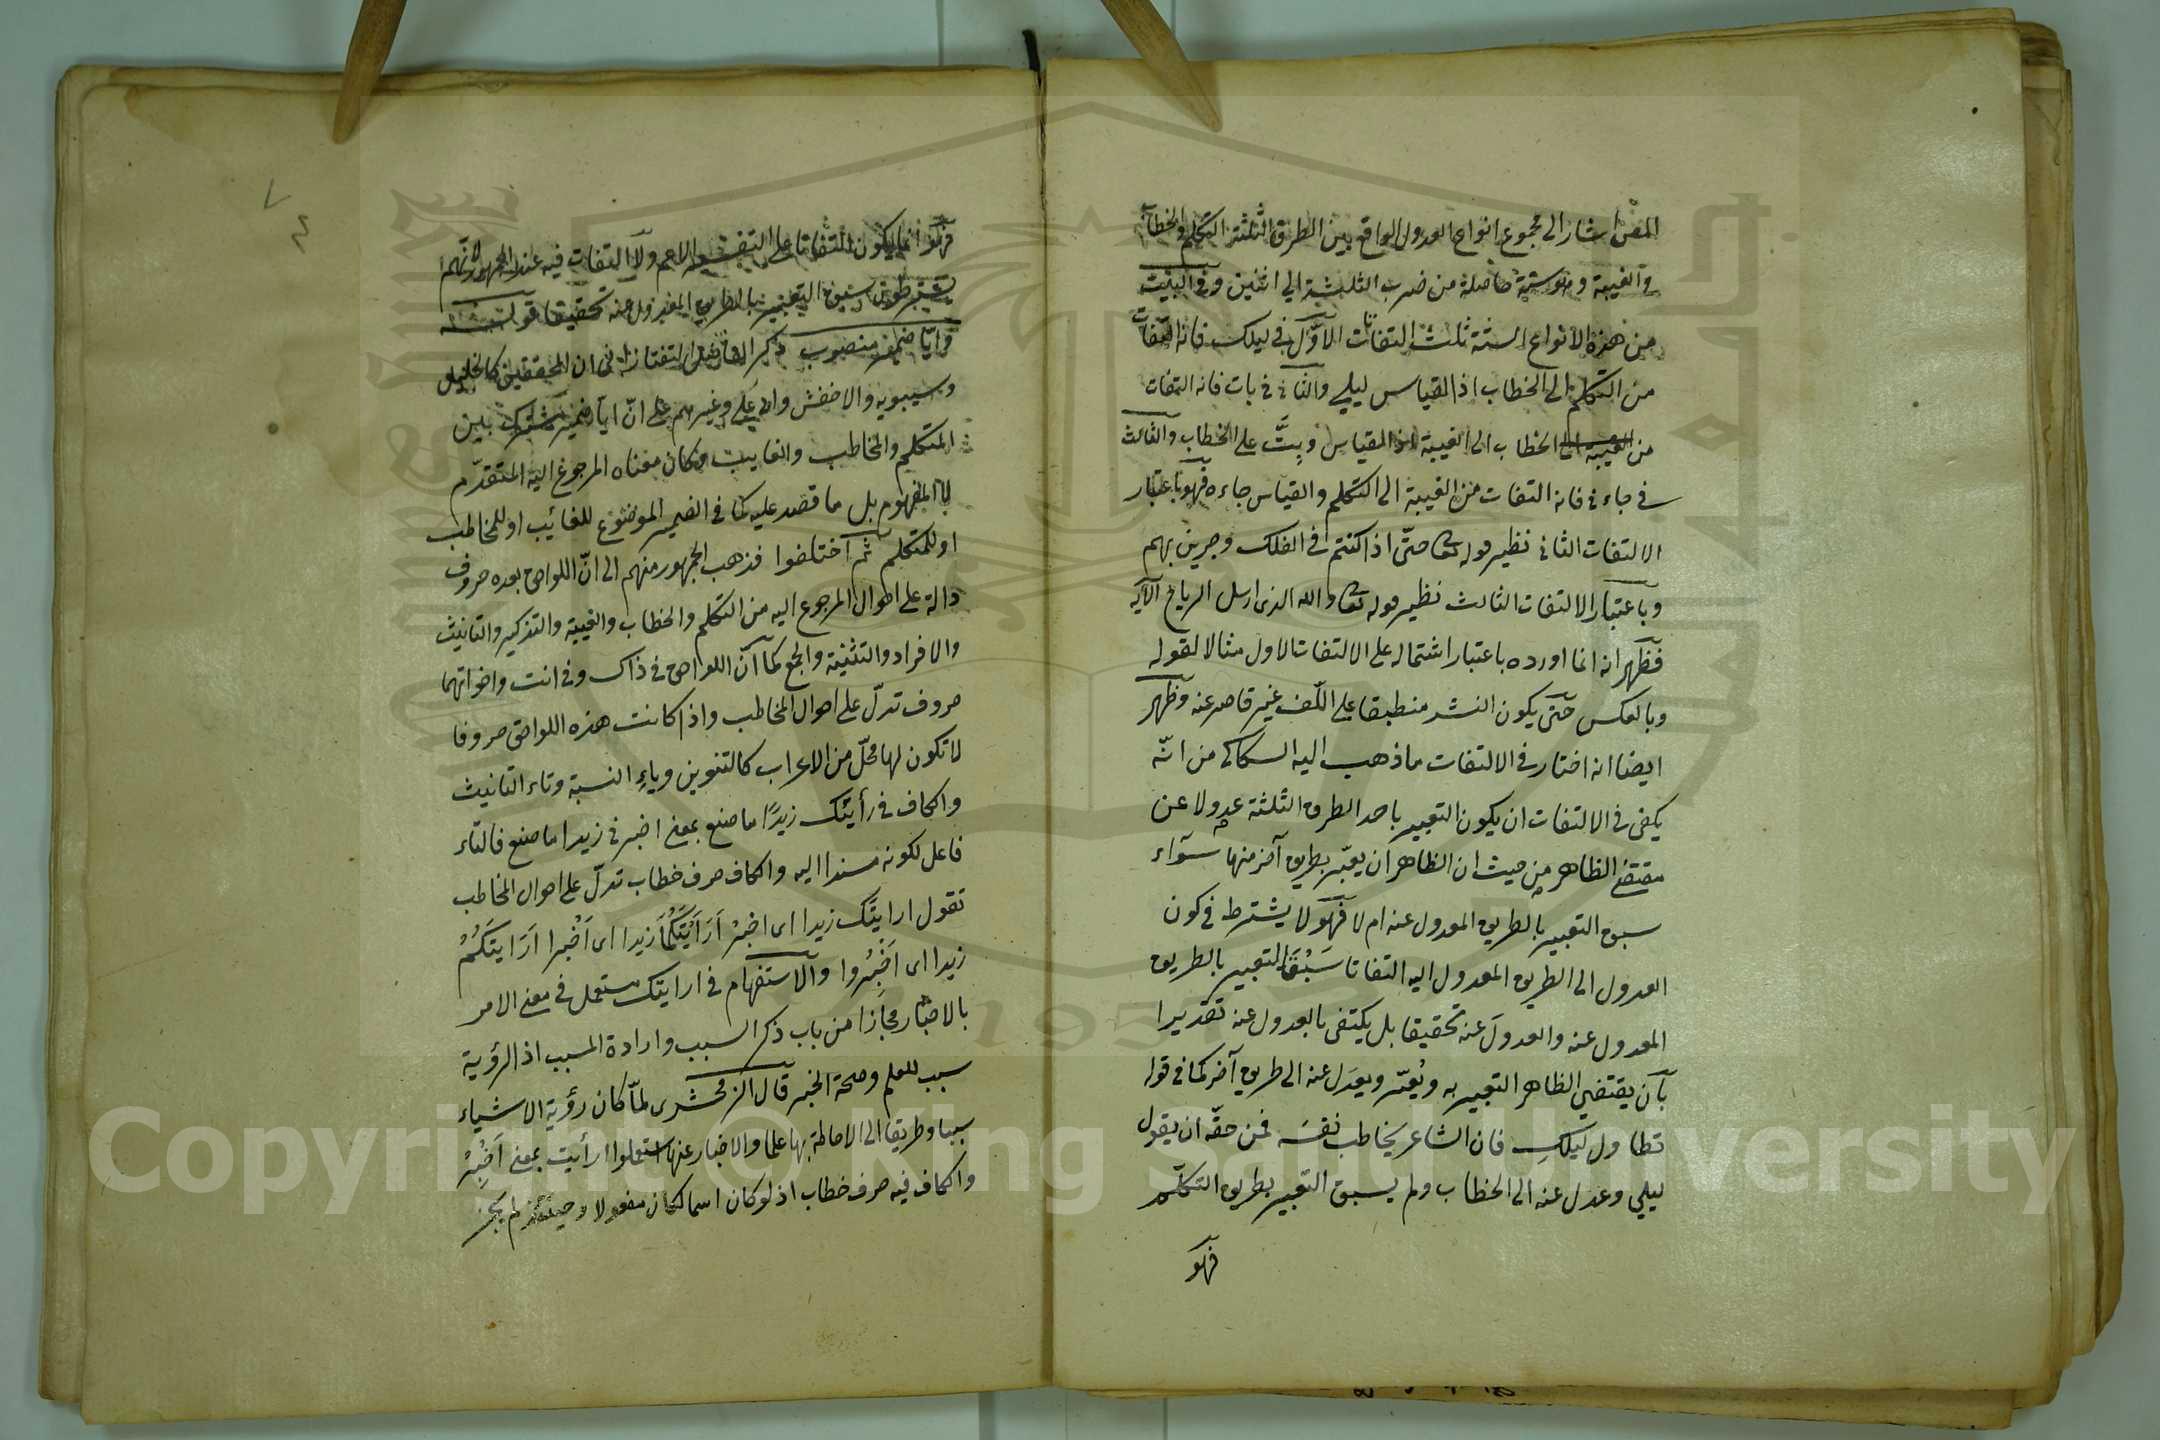 المص اشار الى مجموع انواع العدول الواقع بين الطرق الثلثة التكلم والخطاب
والغيبة وهو ستة حاصلة من ضرب الثلثة الى اثنين وفي البيت
من هذه الانواع الستة ثلث التفاتات الاوّل في ليلك فانه التفات
من التكلم الى الخطاب اذ القياس ليلي والثاني في بات فانه التفات
من الخطاب الى الغيبة اذ القياس وبتَّ على الخطاب والثالث
في جاءني فانه التفات من الغيبة الى التكلم والقياس جاءه فهو باعتبار
الالتفات الثاني نظير قوله تعا حتّى اذا كنتم في الفلك وجرين بهم
وباعتبار الالتفات الثالث نظير قوله تعا والله الذى ارسل الرياح الآية
فظهر انه انما اورده باعتبار اشتماله على الالتفات الاول مثالا لقوله
وبالعكس حتى يكون النشر منطبقا على اللّف غير قاصر عنه وظهر
ايضا انه اختار في الالتفات ما ذهب اليه السكاكى من انّه
يكفى في الالتفات ان يكون التعبير باحد الطرق الثلثة عدولا عن
مقتضى الظاهر من حيث ان الظاهر ان يعبّر بطريق آخر منها سوآء
سبق التعبير بالطريق المعدول عنه ام لا فهو لا يشترط في كون
العدول الى الطريق المعدول اليه التفاتا سَبْقَ التعبير بالطريق
المعدول عنه والعدولَ عنه تحقيقا بل يكتفى بالعدول عنه تقديرا
بأن يقتضي الظاهر التعبير به ويُعبّر ويعدَل عنه الى طريق آخر كما في قوله
تطاول ليلكِ فان الشاعر يخاطب نفسَه فمن حقّه ان يقول
ليلي وعدل عنه الى الخطاب ولم يسبق التعبير بطريق التكلّم
فهو
فهو انما يكون التفاتا على التفسير الاعم ولا التفات فيه عند الجمهور لانّهم
سبق التعبير بالطريق المعدول عنه تحقيقا قوله
وايّا ضمير منصوب ذكر الفاضل التفتازانى ان المحققين كالخليل
وسيبويه والاخفش وابى على وغيرهم على انّ ايّا ضمير مشترك بين
المتكلم والمخاطب والغايب وكان معناه المرجوع اليه المتقدّم
لا المفهوم بل ما قصد عليه كما في الضمير الموضوع للغائب او للمخاطب
او للمتكلم ثم اختلفوا فذهب الجمهور منهم الى انّ اللواحق بعده حروف
دالة على احوال المرجوع اليه من التكلم والخطاب والغيبة والتذكير والتانيث
والافراد والتثنية والجمع كما انّ اللواحق في ذاك وفي انت واخواتهما
حروف تدلّ على احوال المخاطب واذا كانت هذه اللواحق حروفا
لا تكون لها محلّ من الاعراب كالتنوين وياء النسبة وتاء التانيث
والكاف في رأيتك زيدًا ما صنع بمعنى اخبرني زيدا ما صنع فالتاء
فاعل لكونه مسندا اليه والكاف حرف خطاب تدلّ على احوال المخاطب
تقول ارايتَك زيدا اى اخبرْ أرَأَيْتَكُمَا زيدا اى اَخْبِرا ارَايتَكُمْ
زيدا اى اَخْبِرُوا والاستفهام في ارايتك مستعمل في معنى الامر
بالاخبار مجازا من باب ذكر السبب وارادة المسبب اذ الرؤية
سبب للعلم وصحة الخبر قال الزمخشرى لمّا كان رؤية الاشياء
سببا وطريقا الى الاحاطة بها علما والاخبار عنها استعملوا ارأيت بمعنى اَخْبِرْ
والكاف فيه حرف خطاب اذ لو كان اسما لكان مفعولا وحينئذ لم يجز
Copyright © King Saud University